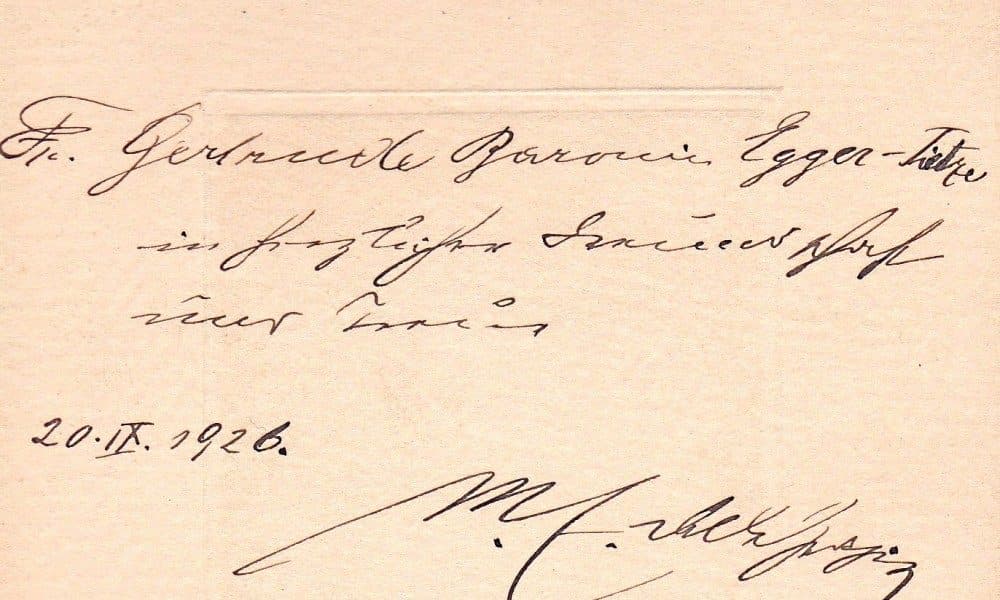 Fr. Gertrude Baronin Egger-Tietze
in herzlicher Freundschaft
und Treue
20.IX.1926.
M. E.